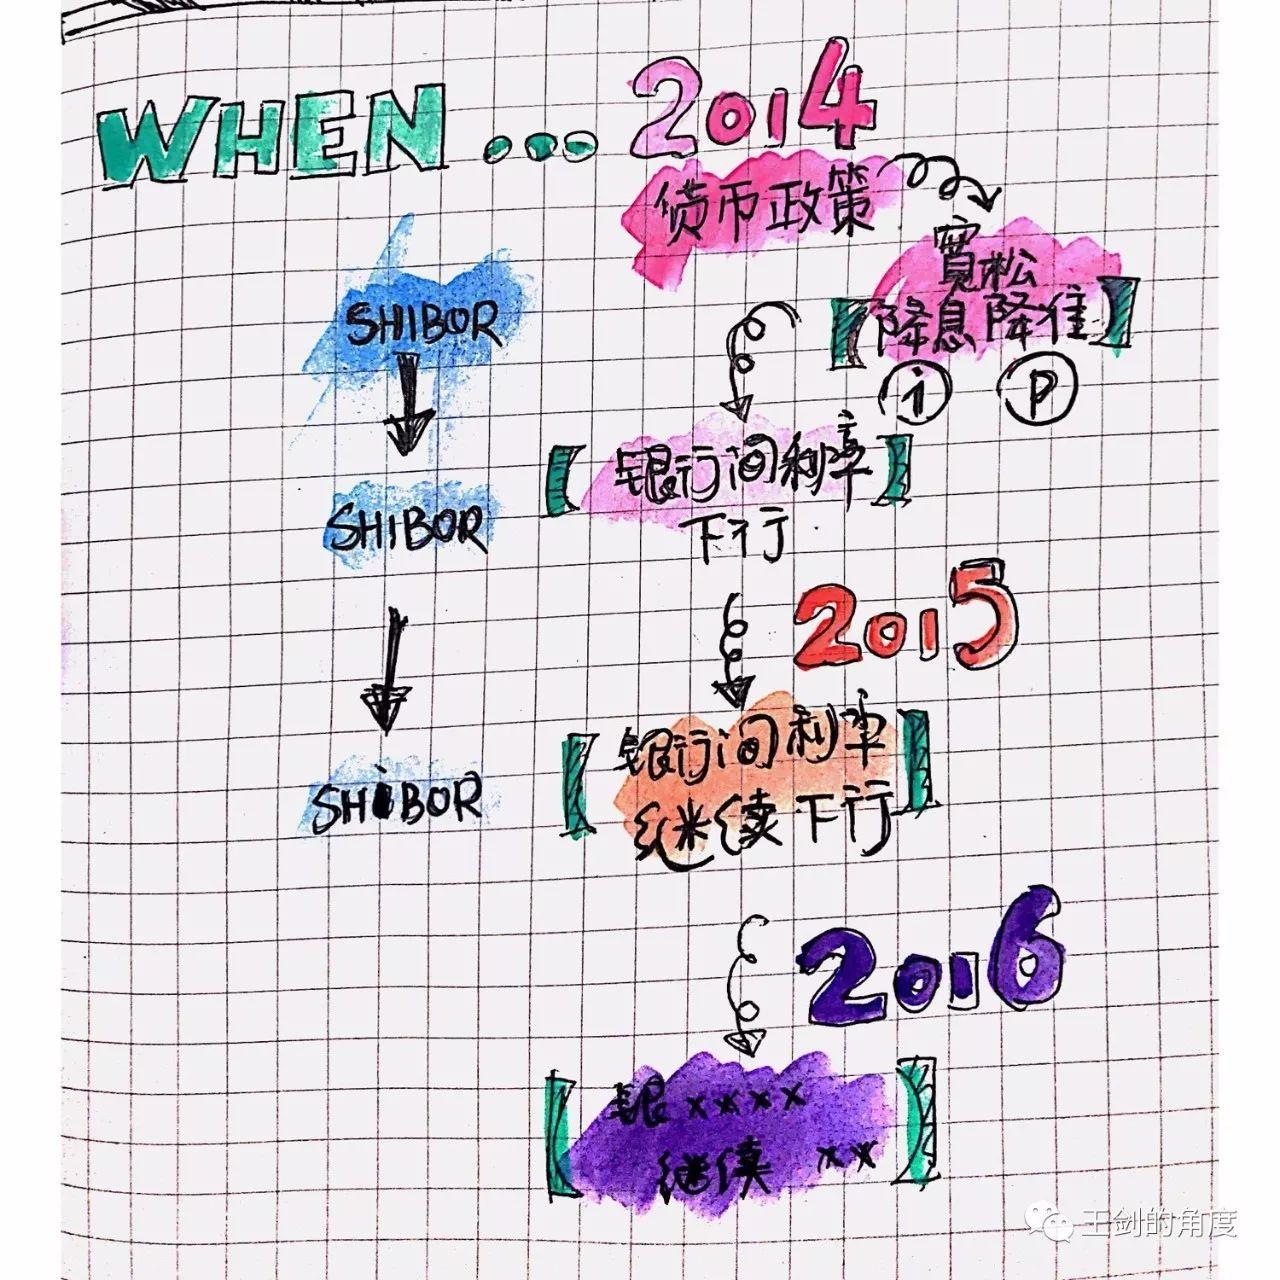 WHEN... 2014
货币政策
宽松
【降息降准】
i p
SHIBOR
【银行间利率】
下行
SHIBOR
2015
【银行间利率
继续下行】
SHiBOR
2016
【银××××
继续 ××】
王剑的角度